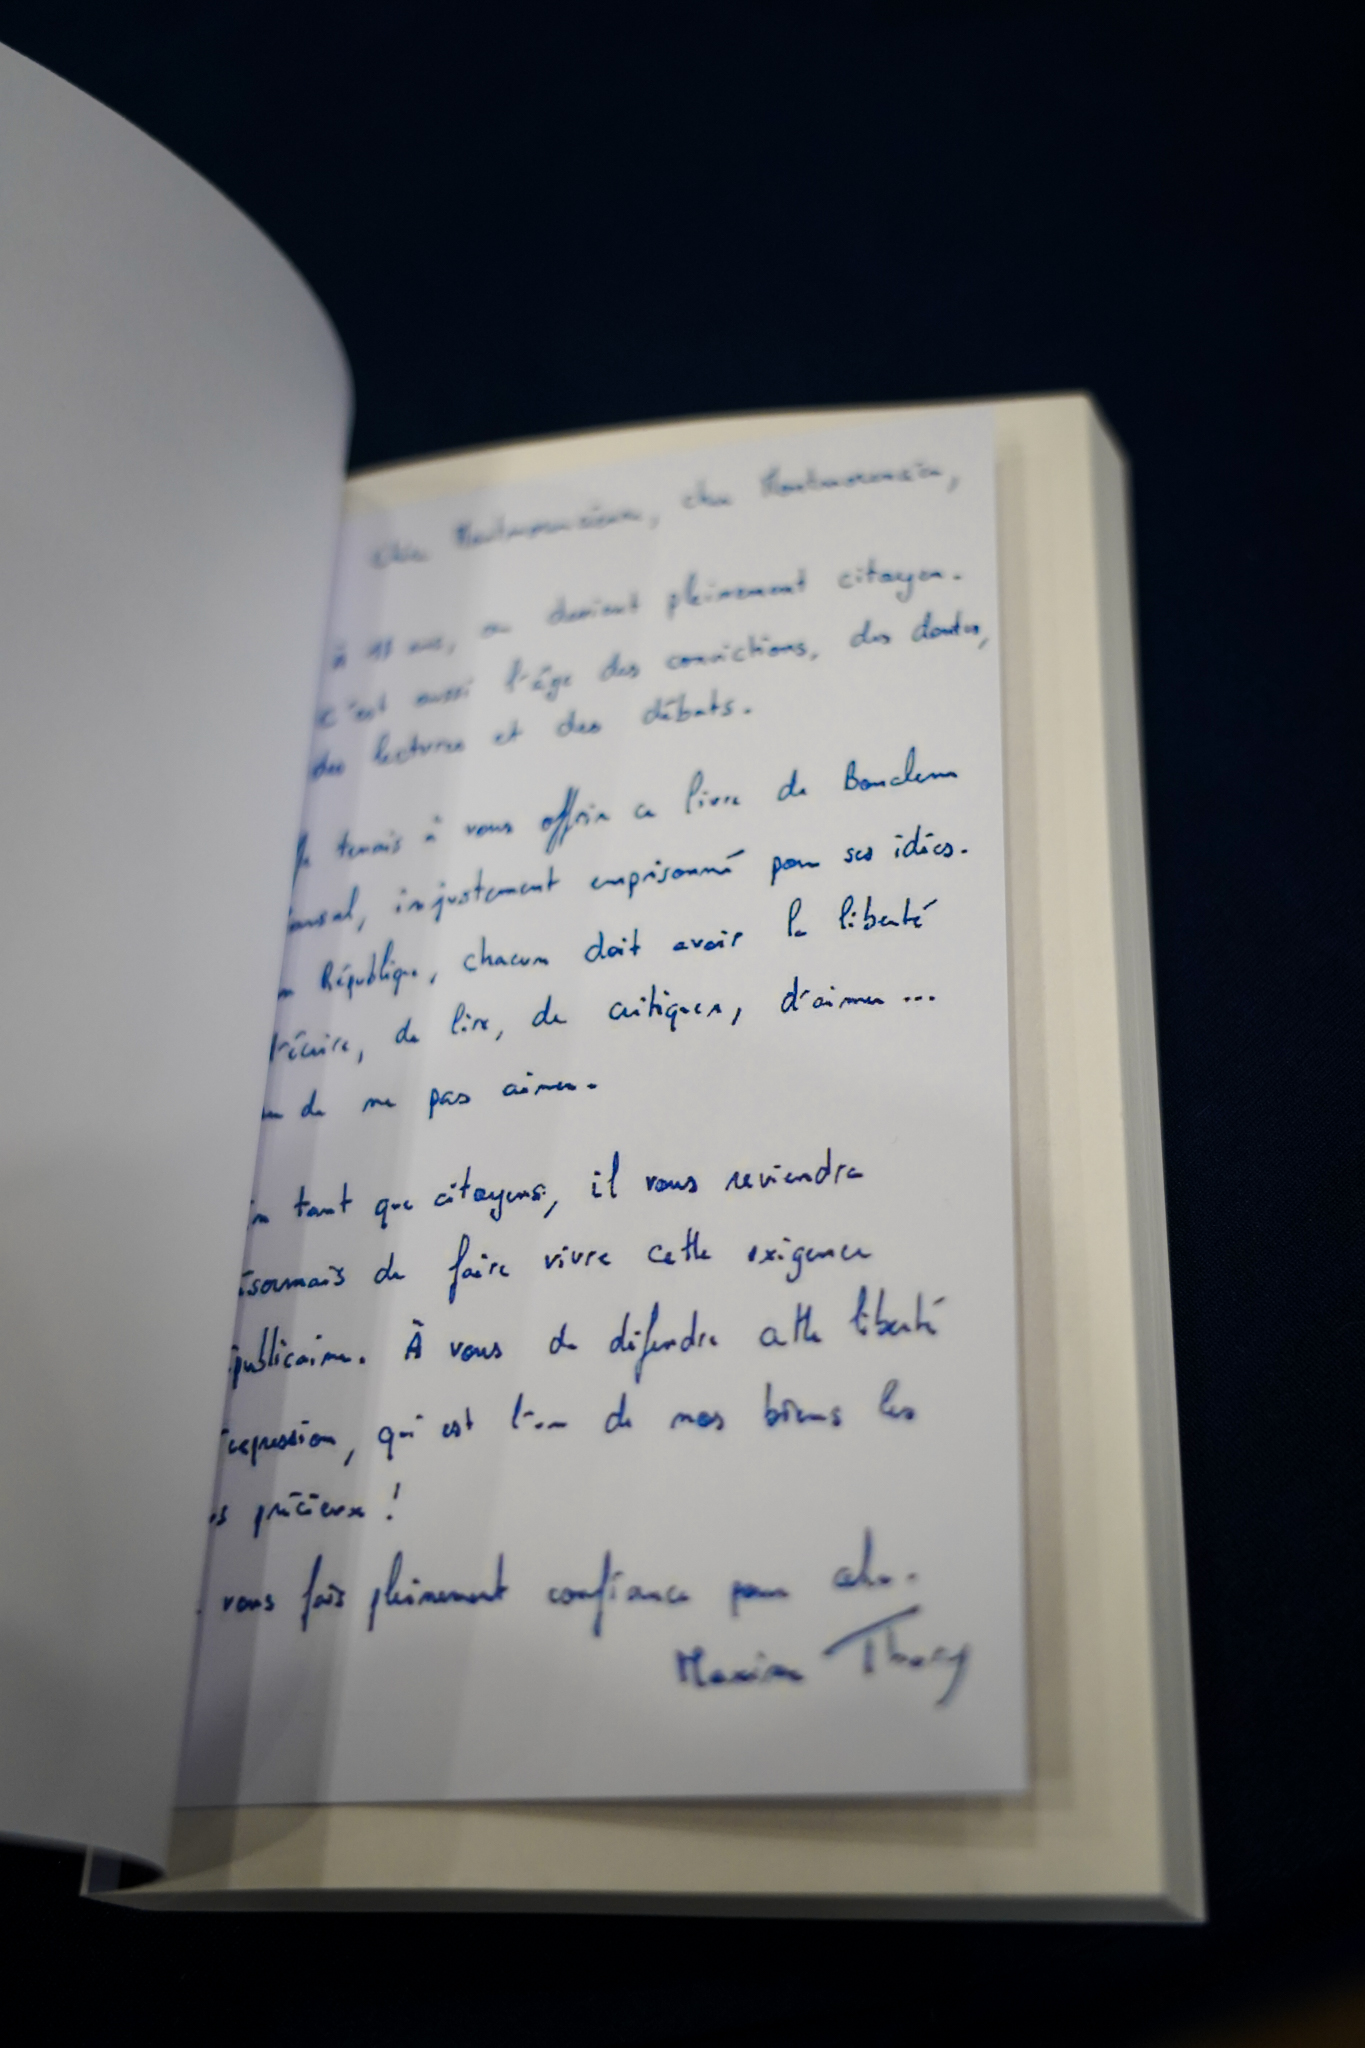 Chère Montmorencéenne, cher Montmorencéen,
à 18 ans, on devient pleinement citoyen.
c'est aussi l'âge des convictions, des doutes,
des lectures et des débats.
Je tenais à vous offrir ce livre de Boualem
ansal, injustement emprisonné pour ses idées.
n République, chacun doit avoir la liberté
d'écrire, de lire, de critiquer, d'aimer ...
ou de ne pas aimer.
n tant que citoyens, il vous reviendra
ésormais de faire vivre cette exigence
publicaine. À vous de défendre cette liberté
'expression, qui est l'un de nos biens les
us précieux !
vous fais pleinement confiance pour cela.
Maxime Thory